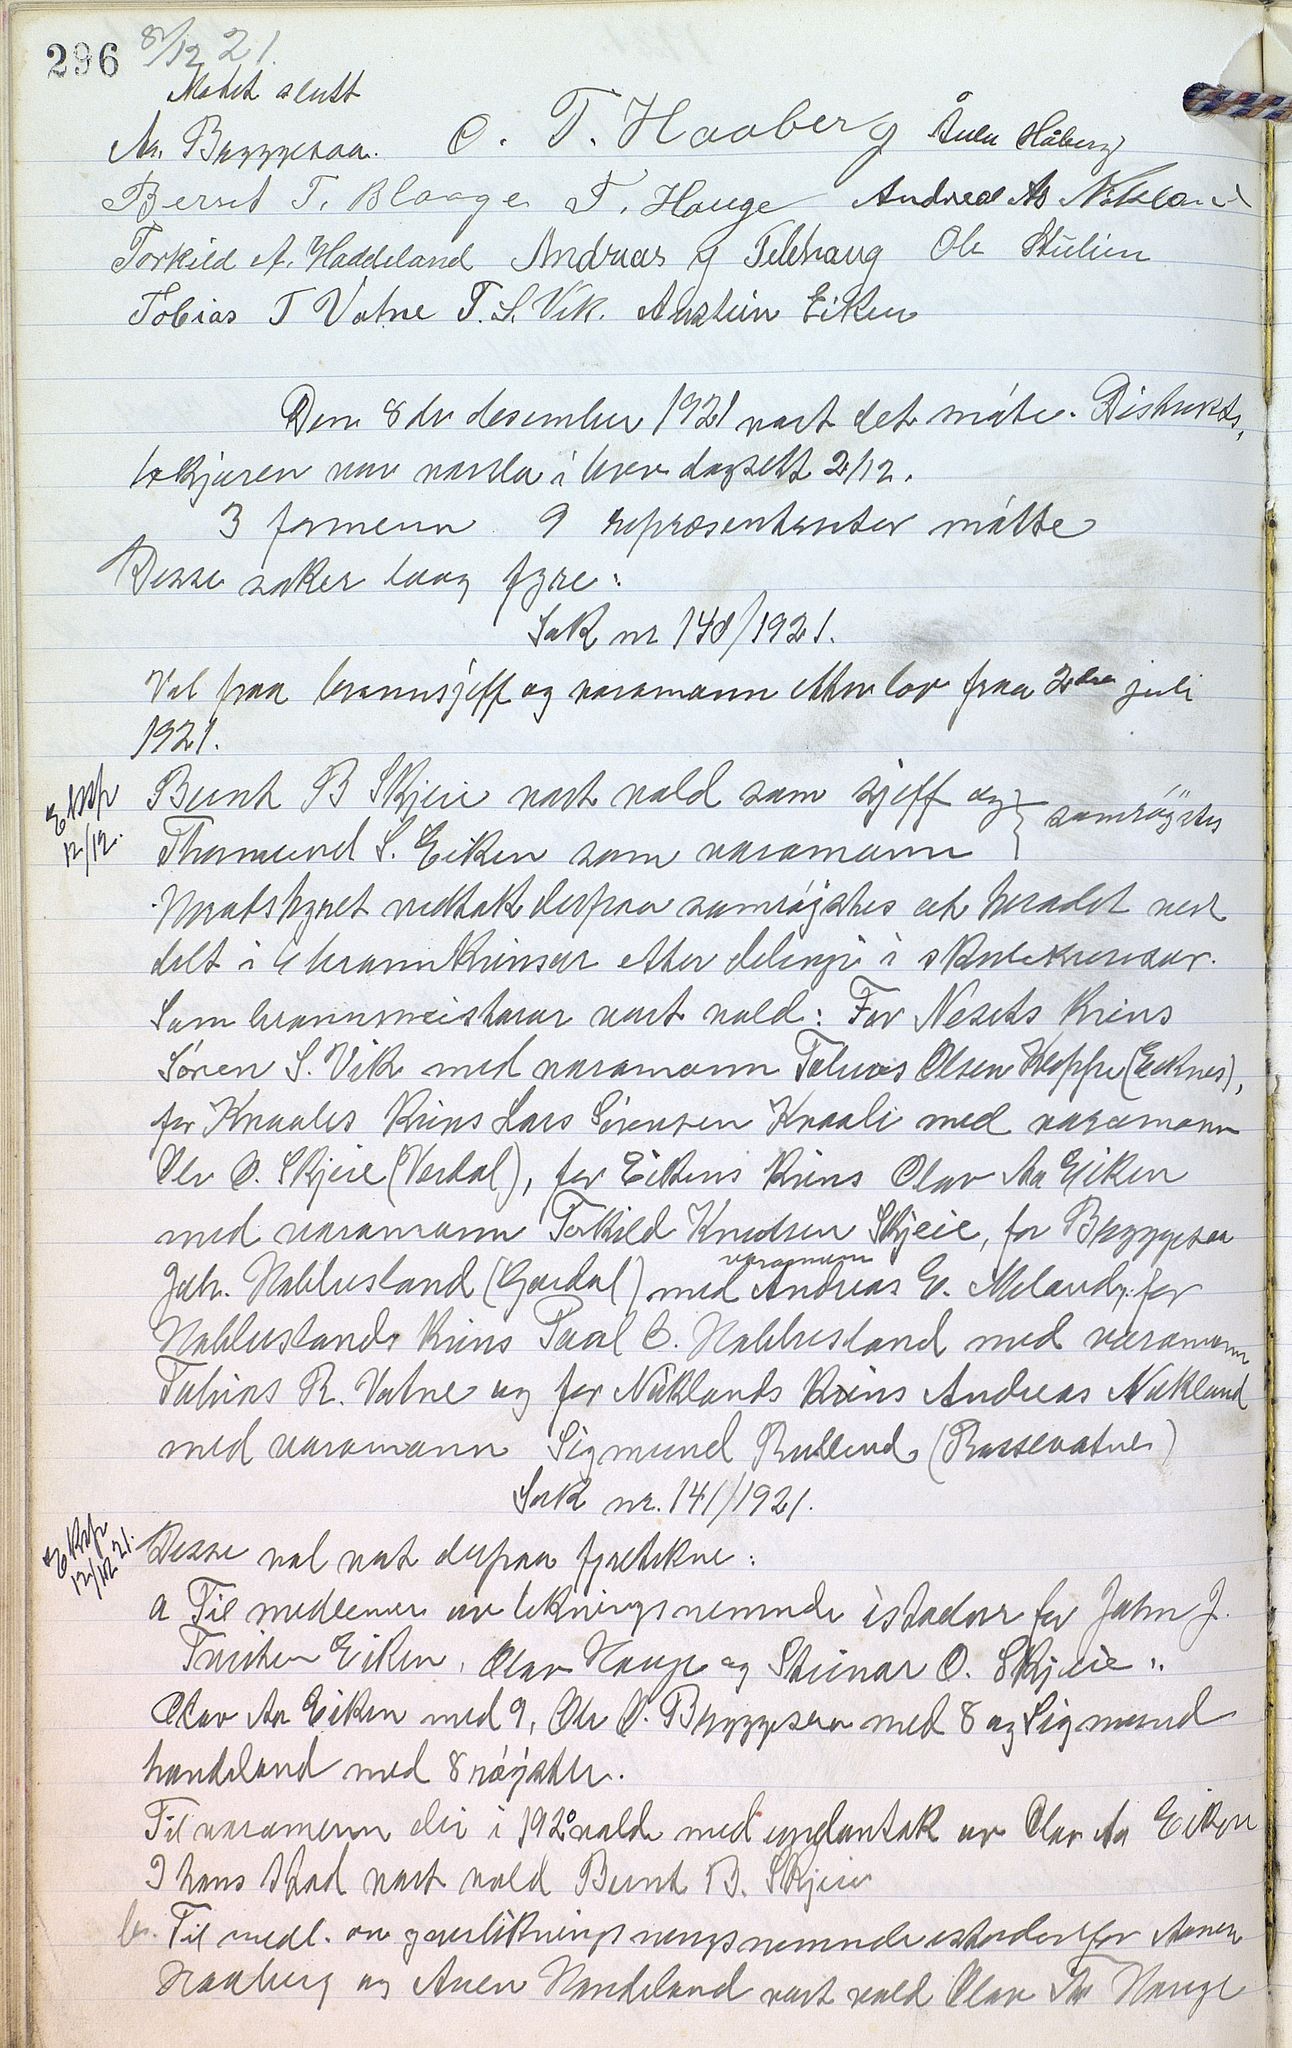 296 8/12 21.
Møtet slutt
Aa. Byggesaa. O. T. Haaberg Ånen Håberg
Berret T. Bloage T. Hauge Andreas As Nøkland
Torkild A. Haddeland Andreas G Teléhaug Ole Stulien
Tobias T Vatne T. S. Vik. Austein Eiken
Den 8de desember 1921 vart det møte. Distrikts-
lækjaren var varsla i brev dagsett 2/12.
3 formenn 9 repræsentantar møtte
Desse saker laag fyre:
Sak nr 140/1921.
Val paa brannsjeff og varamann etter lov fraa 2dre juli
1921.
Eksp
12/12.
Berint B Skjeie vart vald som sjeff og
Thormund S. Eiken som varamann } samrøystes
Heradstyret vedtok derpaa samrøystes at heradet vert
delt i 6 brannkrinsar etter delingi i skulekrinsar.
Som brannmeistarar vart vald: For Nesets krins
Søren S. Vik med varamann Tobias Olsen Kloppe (Eiknes),
for Kvaales krins Lars Sørensen Kvaale med varamann
Ole O. Skjeie (Verdal), for Eikens krins Olav Aa Eiken
med varamann Torkild Knutsen Skjeie, for Byggesaa
Joh. Håbbesland (Gardal) med varamann Andreas E. Meland, for
Habbestands krins Paal O. Habbesland med varamann
Tobias R. Vatne og for Nøklands krins Andreas Nøkland
med varamann Sigmund Rullend (Rossevatne)
Sak nr. 141/1921.
Eksp
12/12 21.
Desse val vart derpaa fyretekne:
a Til medlemer av likningsnemnde istadenn for John J.
Torsten Eiken, Olav Hauge og Steinar O. Skjeie:
Olav Aa Eiken med 9, Ole O. Byggesaa med 8 og Sigmund
handeland med 8 røyster.
Til varamenn dei i 1920 valde med undantak av Olav Aa Eiken
I hans stad vart vald Berint B. Skjeie
b. Til medl. av yverliknings nemnde istadenfor Aanen
Haaberg og Anen Handeland vart vald Olav Aa Hauge